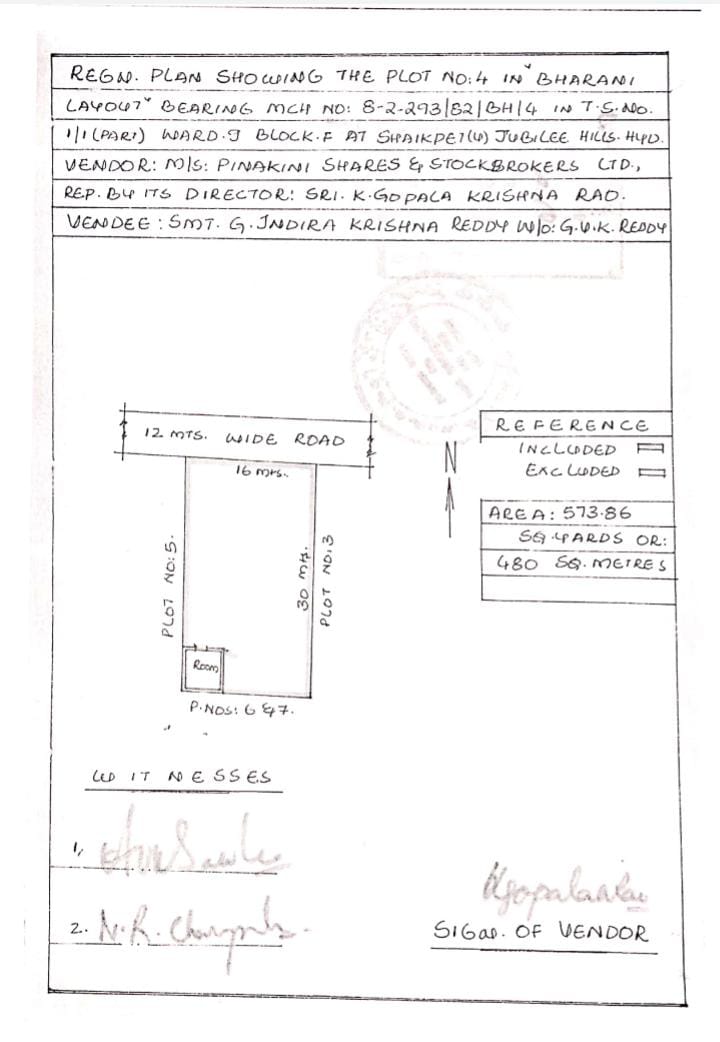 REGN. PLAN SHOWING THE PLOT NO: 4 IN "BHARANI
LAYOUT" BEARING MCH NO: 8-2-293/82/BH/4 IN T.S.NO.
1/1 (PART) WARD.J BLOCK.F AT SHAIKPET(V) JUBILEE HILLS. HYD.
VENDOR: M/S: PINAKINI SHARES & STOCKBROKERS LTD.,
REP. BY ITS DIRECTOR: SRI. K. GOPALA KRISHNA RAO.
VENDEE: SMT. G. INDIRA KRISHNA REDDY W/O: G.V.K. REDDY
12 MTS. WIDE ROAD
16 Mts.
PLOT NO: 5.
30 Mts.
PLOT NO: 3
Room
P. NOS: 6 & 7.
N
REFERENCE
INCLUDED
EXCLUDED
AREA: 573.86
SQ. YARDS OR:
480 SQ. METRES
WITNESSES
1,
2. N.R.
SIGN. OF VENDOR